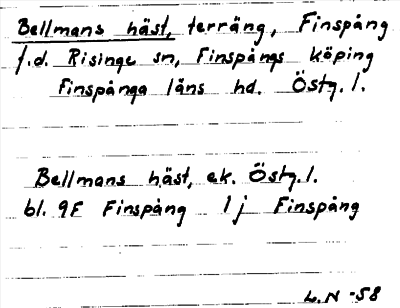 Bellmans häst, terräng, Finspång
f.d. Risinge sn, Finspångs köping
Finspånga läns hd. Östg. l.
Bellmans häst, ek. Östg. l.
bl. 9F Finspång 1j Finspång
L.N -58